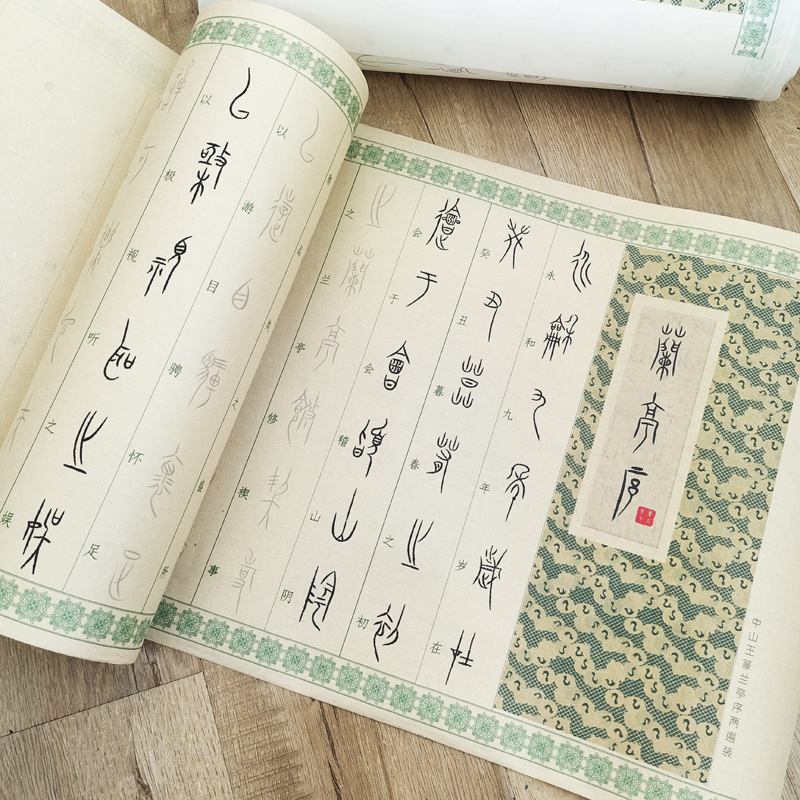 中山王篆兰亭序两遍装
蘭亭序
永和九年岁在
癸丑暮春之初
会于会稽山阴
之兰亭修禊事
以游目骋怀足
以极视听之娱